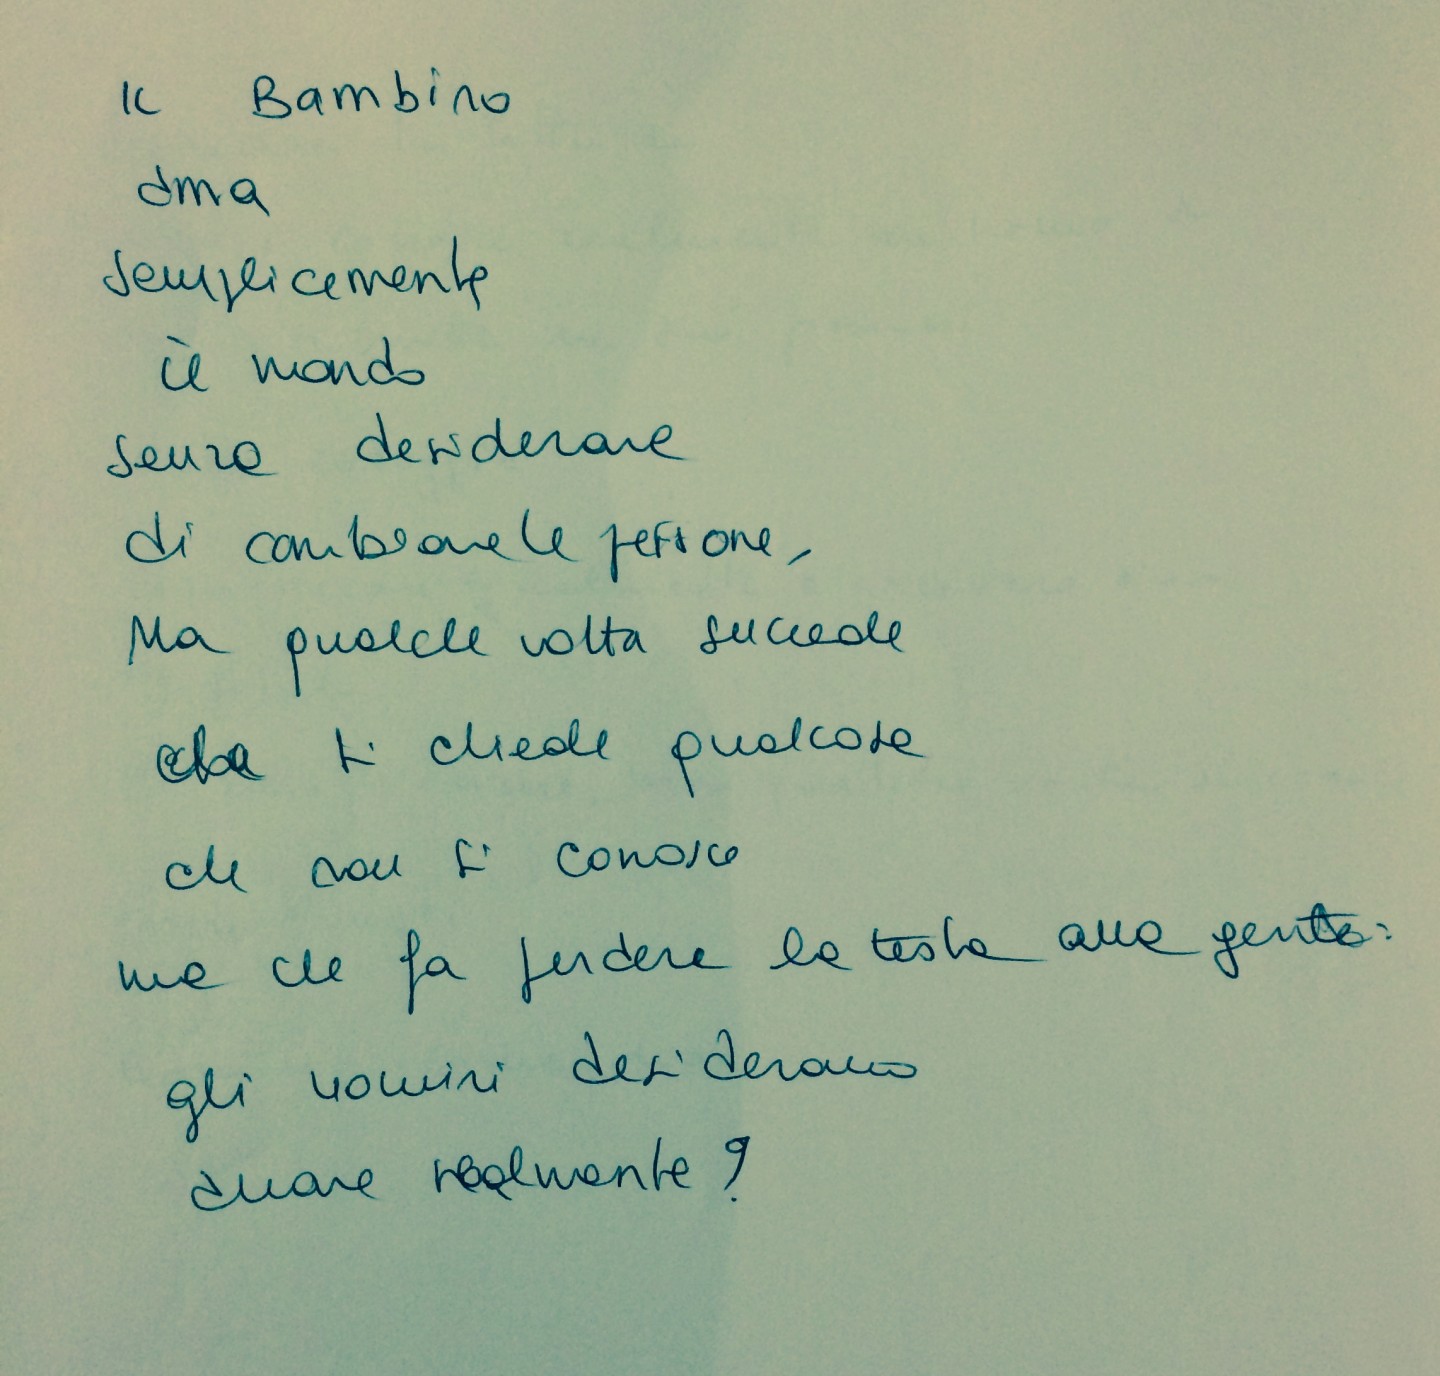 Il Bambino
ama
semplicemente
il mondo
senza desiderare
di cambiare le persone,
Ma qualche volta succede
che si chiede qualcosa
che non si conosce
ma che fa perdere la testa alla gente:
gli uomini desiderano
amare realmente?